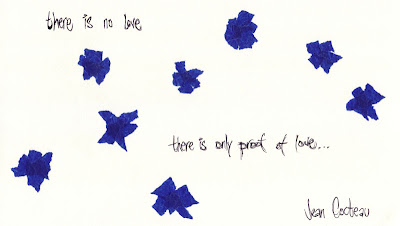 there is no love
there is only proof of love...
Jean Cocteau